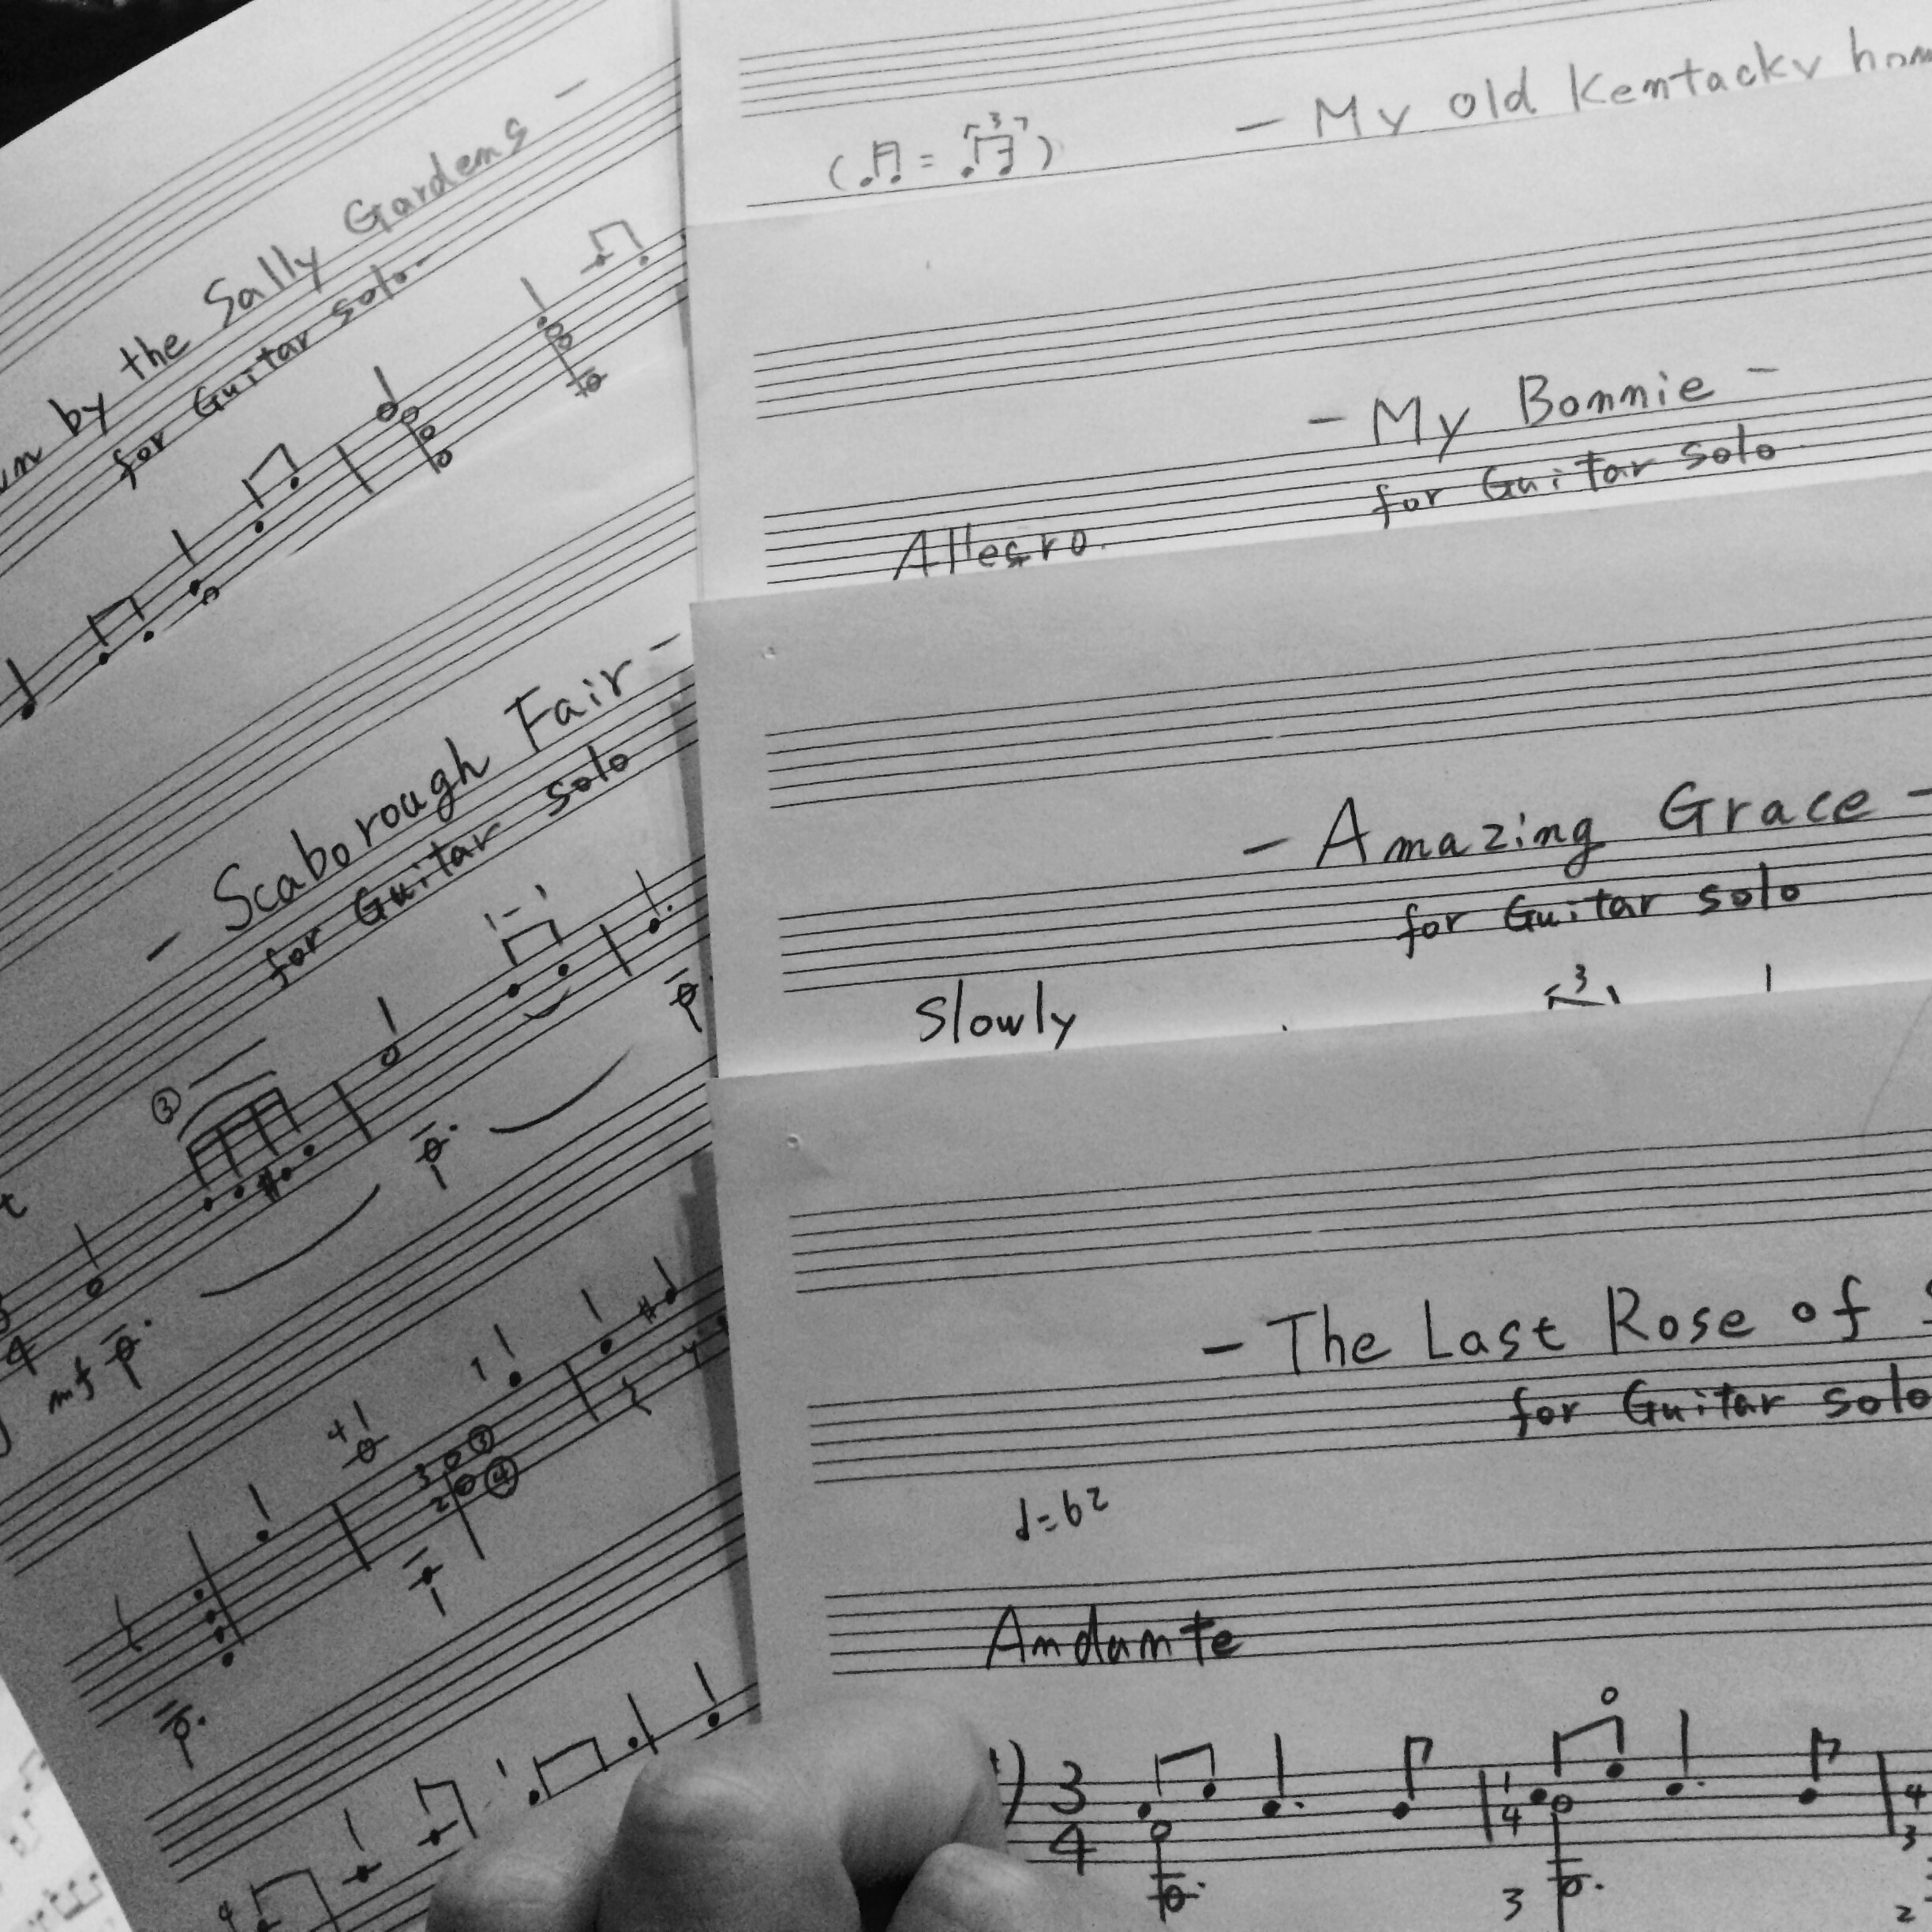 by the Sally Gardens -
for Guitar solo-
- Scaborough Fair -
for Guitar solo
mf
- My old Kentacky
- My Bonnie -
for Guitar solo
Allegro.
- Amazing Grace -
for Guitar solo
Slowly
3
- The Last Rose of
for Guitar solo
♩=62
Andante
3
4